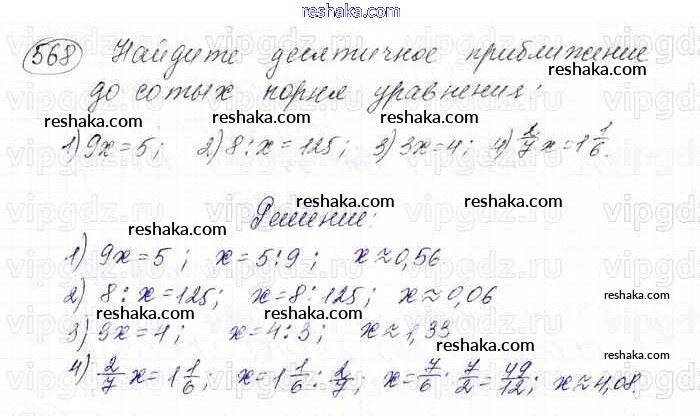 reshaka.com
568 Найдите десятичное приближение
до сотых корня уравнения:
reshaka.com reshaka.com reshaka.com reshaka.com
1) 9x=5; 2) 8:x=125; 3) 3x=4; 4) 2/7 x=1 1/6.
reshaka.com
Решение:
reshaka.com reshaka.com reshaka.com
1) 9x=5; x=5:9; x≈0,56
2) 8:x=125; x=8:125; x≈0,06
reshaka.com reshaka.com reshaka.com
3) 3x=4; x=4:3; x≈1,33
reshaka.com reshaka.com reshaka.com reshaka.com
4) 2/7 x=1 1/6; x=1 1/6 : 2/7; x=7/6 · 7/2=49/12; x≈4,08.
reshaka.com